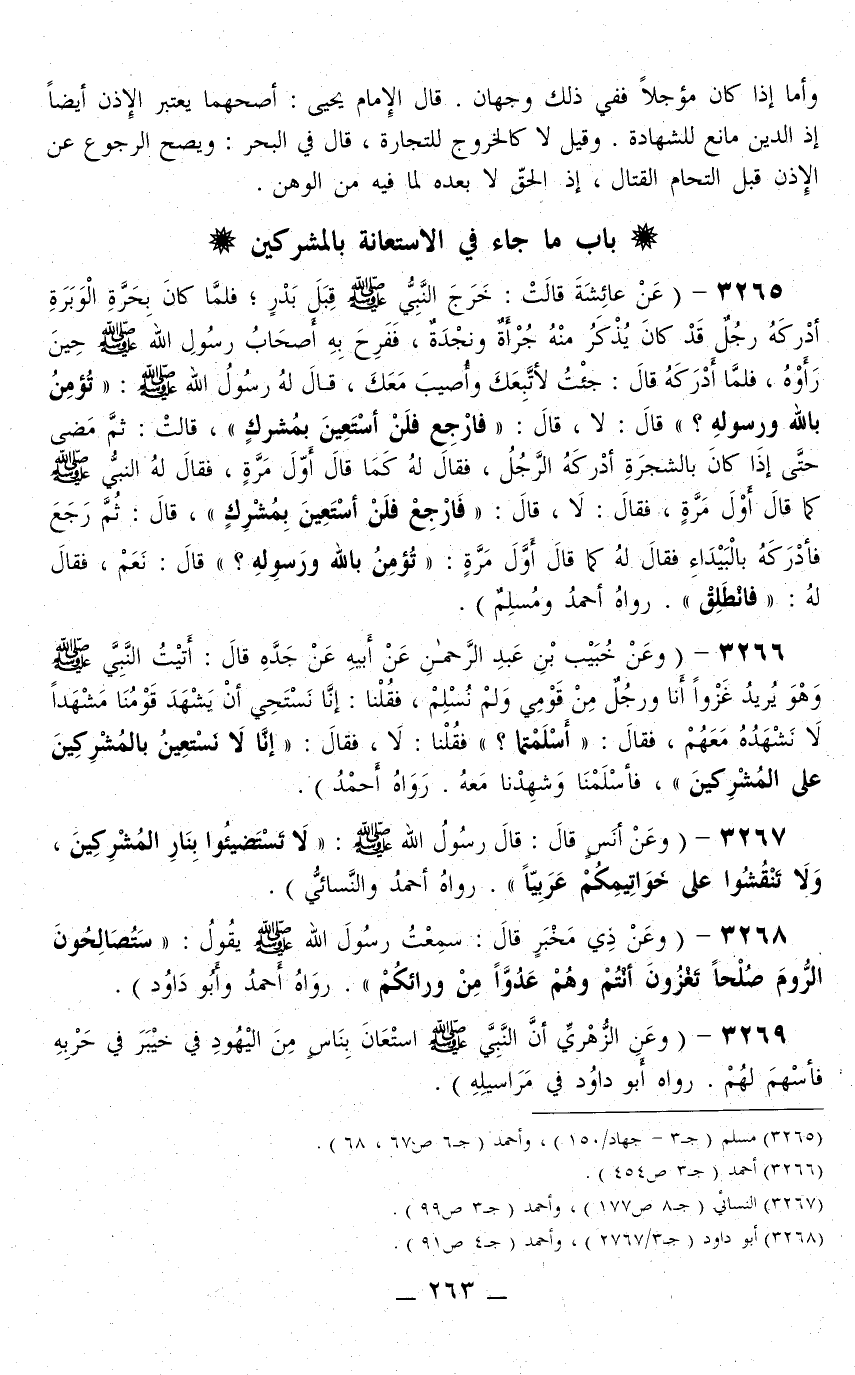 وأما إذا كان مؤجلاً ففي ذلك وجهان . قال الإمام يحيى : أصحهما يعتبر الإِذن أيضاً
إذ الدين مانع للشهادة . وقيل لا كالخروج للتجارة ، قال في البحر : ويصح الرجوع عن
الإِذن قبل التحام القتال ، إذ الحقّ لا بعده لما فيه من الوهن .
باب ما جاء في الاستعانة بالمشركين
٣٢٦٥ – ( عَنْ عائِشَةَ قالَتْ : خَرَجَ النَّبِيُّ ﷺ قِبَلَ بَدْرٍ ؛ فلمَّا كانَ بِحَرَّةِ الْوَبَرَةِ
أدْركَهُ رجُلٌ قَدْ كانَ يُذْكَرُ منْهُ جُرْأَةٌ ونجْدَةٌ ، فَفَرِحَ بِهِ أصحَابُ رسُولِ الله ﷺ حِينَ
رَأَوْهُ ، فلمَّا أَدْرَكَهُ قالَ : جئْتُ لأتَّبِعَكَ وأُصيبَ مَعَكَ ، قـالَ لهُ رسُولُ الله ﷺ : « تُؤمِنُ
بالله ورسولهِ ؟ » قالَ : لا ، قالَ : « فارْجِع فلَنْ أسْتَعِينَ بمُشركٍ » ، قالتْ : ثمَّ مَضى
حتَّى إذَا كانَ بالشجرَةِ أدْركَهُ الرَّجُلُ ، فقالَ لهُ كَمَا قالَ أوّلَ مَرَّةٍ ، فقالَ لهُ النبيُّ ﷺ
كما قالَ أوْلَ مَرَّةٍ ، فقالَ : لَا ، قالَ : « فَارْجِعْ فلَنْ أسْتَعِينَ بِمُشْرِكٍ » ، قالَ : ثُمَّ رَجَعَ
فأدْرَكَهُ بالْبَيْدَاءِ فقالَ لهُ كما قالَ أوَّلَ مَرَّةٍ : « تُؤمِنُ بالله ورَسولهِ ؟ » قالَ : نَعَمْ ، فقالَ
لهُ : « فانْطَلِقْ » . رواهُ أحمدُ ومُسلِمٌ ) .
٣٢٦٦ – ( وعَنْ خُبَيْب بْنِ عَبدِ الرَّحمـٰنِ عَنْ أبيهِ عَنْ جَدَّهِ قالَ : أَتيْتُ النَّبِيَّ ﷺ
وَهْوَ يُريدُ غَزْواً أَنا ورجُلٌ مِنْ قَوْمِي وَلمْ نُسْلِمْ ، فقُلْنا : إنَّا نَسْتَحِي أنْ يَشْهَدَ قَوْمُنَا مَشْهَداً
لَا نَشْهَدُهُ مَعَهُمْ ، فقالَ : « أَسْلَمْتما ؟ » فقُلْنا : لَا ، فقالَ : « إنَّا لَا نَسْتعِينُ بالمُشْرِكِينَ
على المُشْرِكينَ » ، فأسْلَمْنَا وَشهِدْنا مَعهُ . رَوَاهُ أَحمْدُ ) .
٣٢٦٧ – ( وعَنْ أنَسٍ قالَ : قالَ رسُولُ الله ﷺ : « لَا تَسْتَضيئُوا بِنَارِ المُشْرِكِينَ ،
وَلَا تَنْقُشُوا على خَوَاتِيمِكُمْ عَرَبِيّاً » . رواهُ أحمدُ والنَّسائيُّ ) .
٣٢٦٨ – ( وعَنْ ذِي مَخْبَرٍ قالَ : سمِعْتُ رسُولَ الله ﷺ يقُولُ : « سَتُصَالِحُونَ
الرُّومَ صُلْحاً تَغْزُونَ أنْتُمْ وهُمْ عَدُوَّاً مِنْ ورائكُمْ » . رواهُ أَحمدُ وأبُو دَاوُد ) .
٣٢٦٩ – ( وعَنِ الزُّهْريِّ أنَّ النَّبِيَّ ﷺ استْعَانَ بِنَاسٍ مِنَ اليْهُودِ في خيْبَرَ في حَرْبِهِ
فأسْهمَ لهُمْ . رواه أبو داوُد في مَرَاسيلِهِ ) .
(٣٢٦٥) مسلم ( جـ٣ – جهاد/١٥٠ ) ، وأحمد ( جـ٦ ص٦٧ ، ٦٨ ) .
(٣٢٦٦) أحمد ( جـ٣ ص٤٥٤ ) .
(٣٢٦٧) النسائي ( جـ٨ ص١٧٧ ) ، وأحمد ( جـ٣ ص٩٩ ) .
(٣٢٦٨) أبو داود ( جـ٢٧٦٧/٣ ) ، وأحمد ( جـ٤ ص٩١ ) .
– ٢٦٣ –